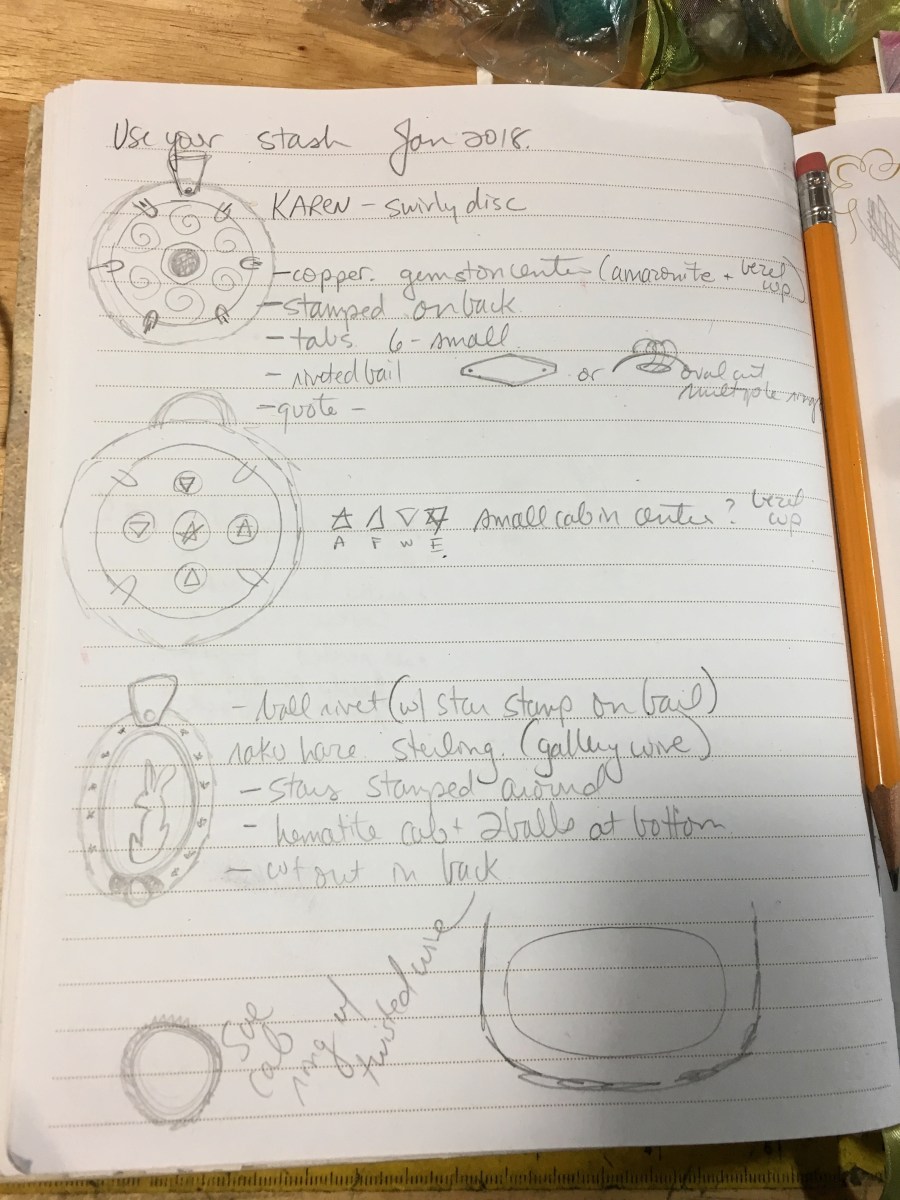 Use your stash Jan 2018.
KAREN - swirly disc
- copper. gemstone center (amazonite + bezel cup)
- stamped on back
- tabs 6 - small
- riveted bail or oval cut
multiple rings
- quote -
A F W E small cab in center? bezel cup
- ball rivet (w/ star stamp on bail)
raku hare. sterling. (gallery wire)
- stars stamped around
- hematite cab + 2 balls at bottom
- cut out in back
Sue
cab
ring w/
twisted wire